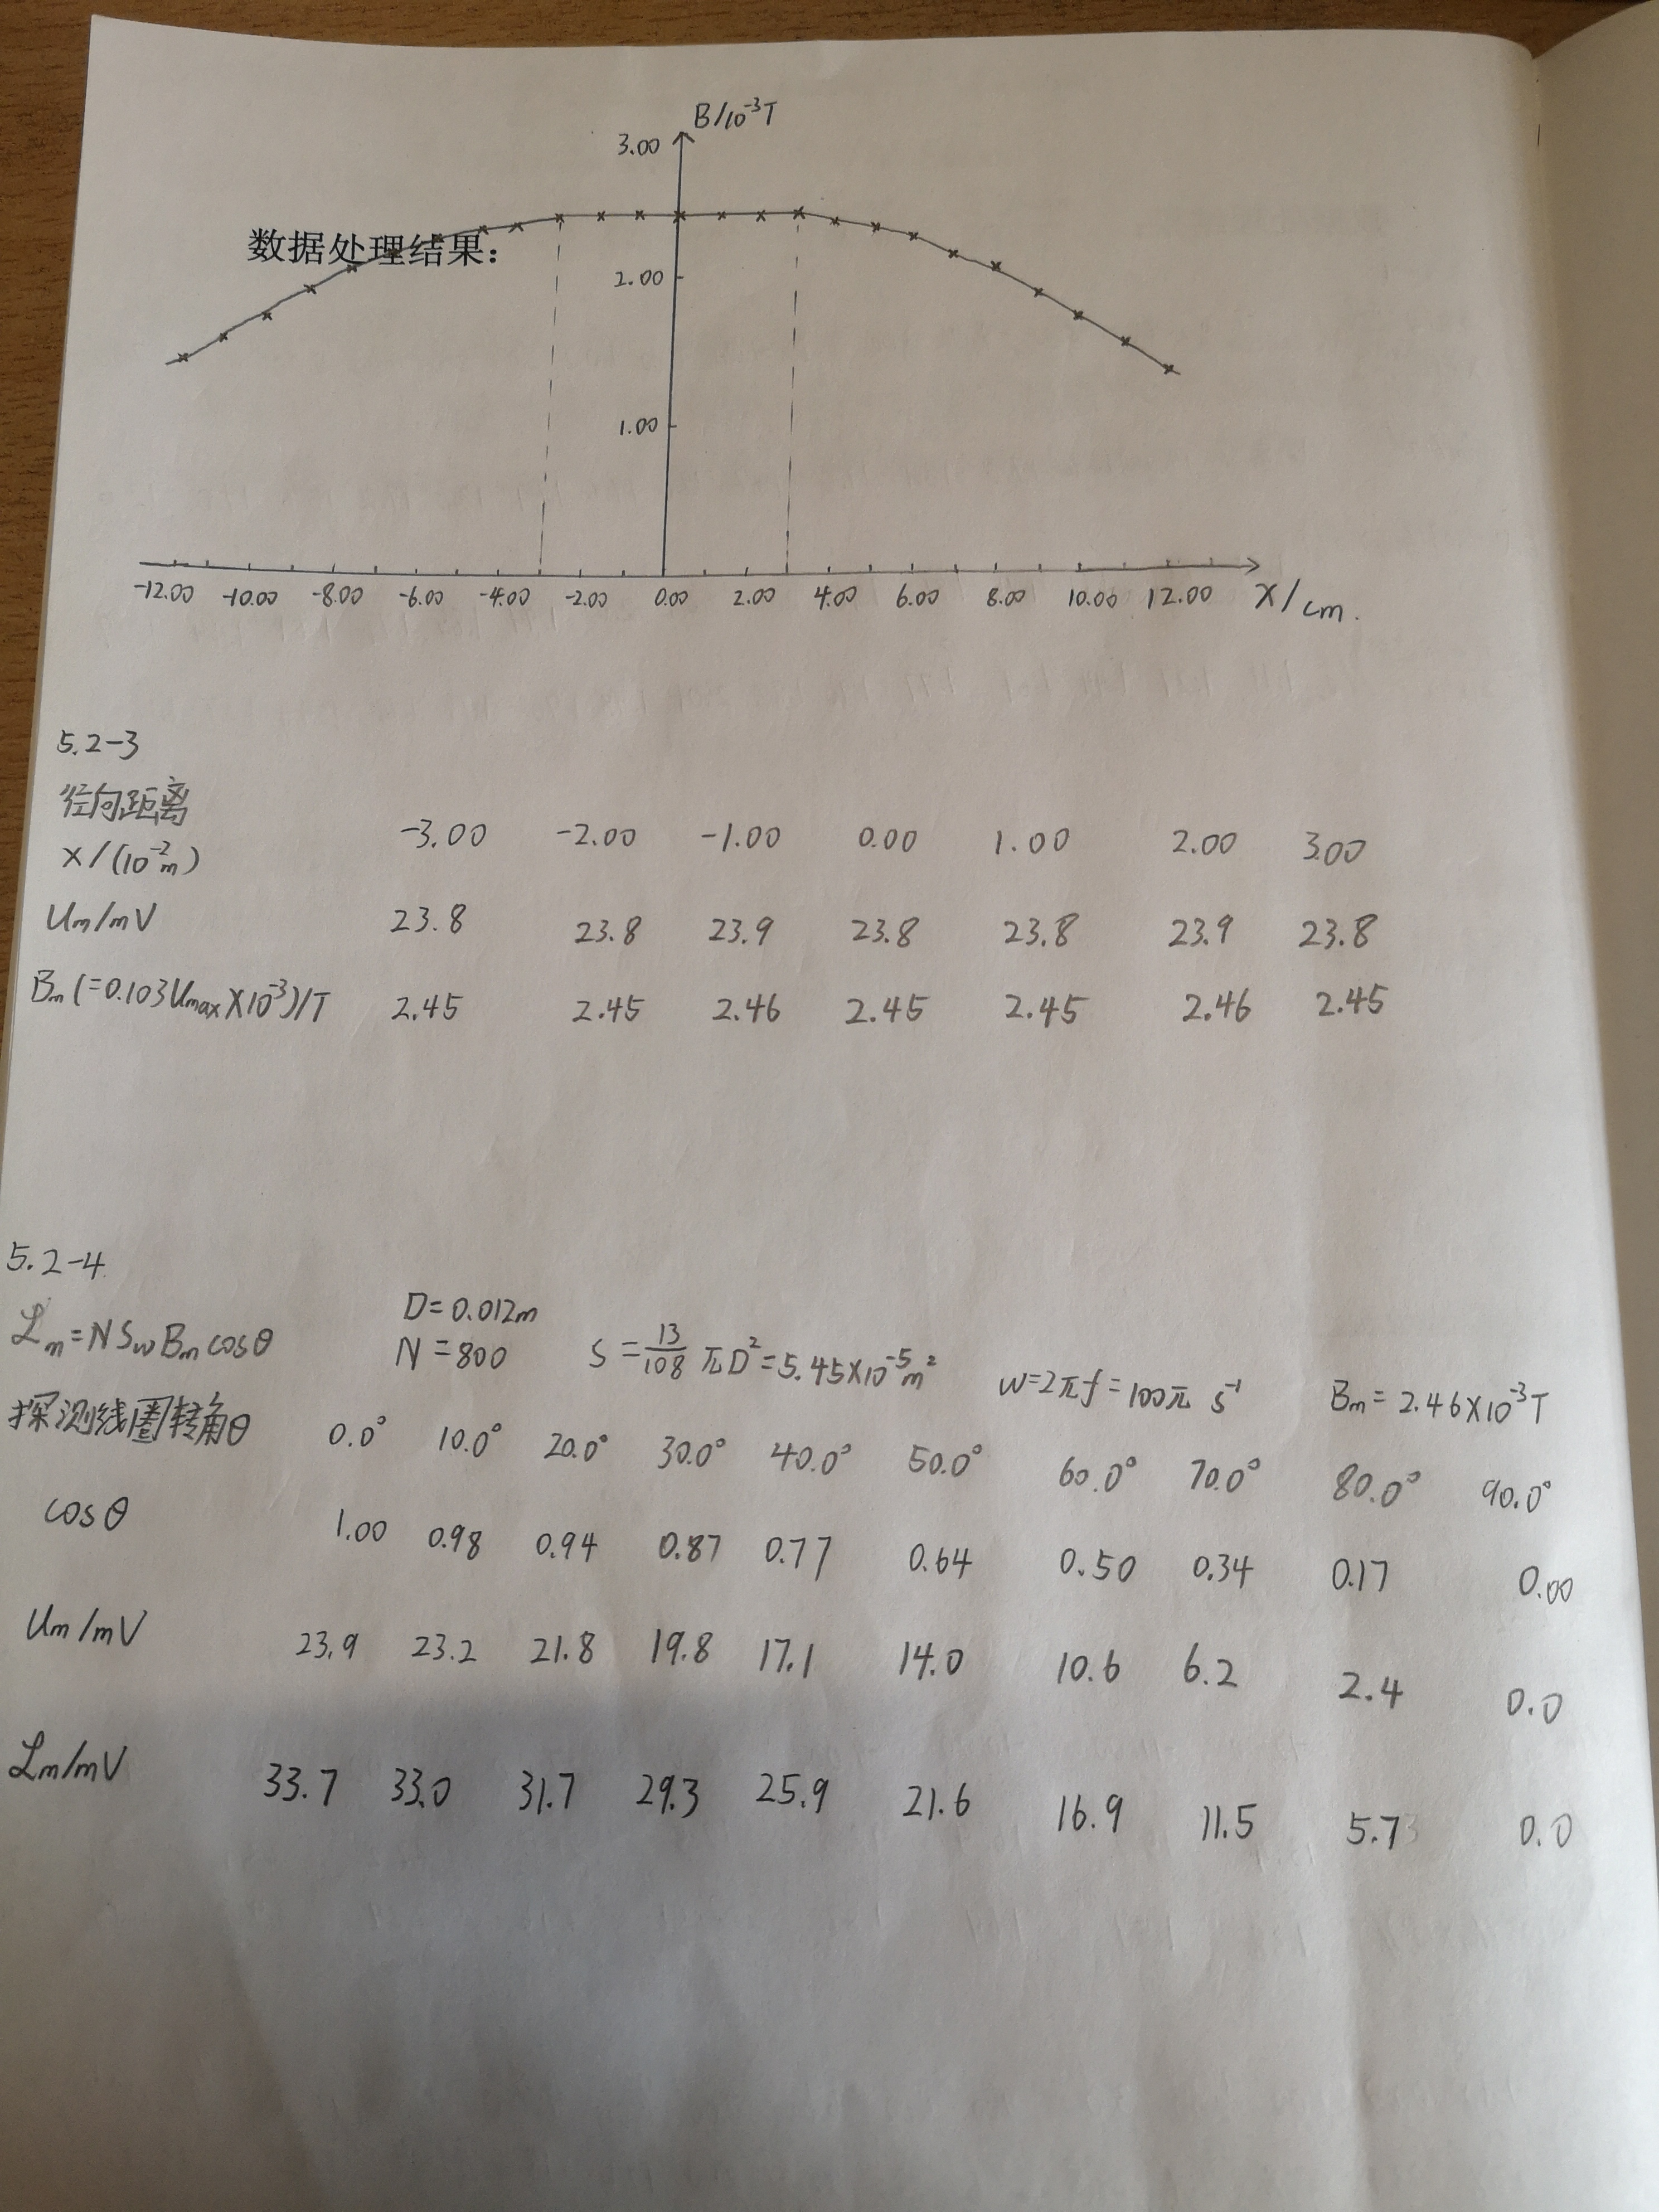 B/10⁻³T
3.00
数据处理结果：
2.00
1.00
-12.00 -10.00 -8.00 -6.00 -4.00 -2.00 0.00 2.00 4.00 6.00 8.00 10.00 12.00 X/cm.
5.2-3
径向距离
X/(10⁻²m) -3.00 -2.00 -1.00 0.00 1.00 2.00 3.00
Um/mV 23.8 23.8 23.9 23.8 23.8 23.9 23.8
Bm(=0.103Umax×10⁻³)/T 2.45 2.45 2.46 2.45 2.45 2.46 2.45
5.2-4
D=0.012m
ℒm=NSωBm cosθ N=800 S=13/108 πD²=5.45×10⁻⁵m² ω=2πf=100π s⁻¹ Bm=2.46×10⁻³T
探测线圈转角θ 0.0° 10.0° 20.0° 30.0° 40.0° 50.0° 60.0° 70.0° 80.0° 90.0°
cosθ 1.00 0.98 0.94 0.87 0.77 0.64 0.50 0.34 0.17 0.00
Um/mV 23.9 23.2 21.8 19.8 17.1 14.0 10.6 6.2 2.4 0.0
ℒm/mV 33.7 33.0 31.7 29.3 25.9 21.6 16.9 11.5 5.7 0.0